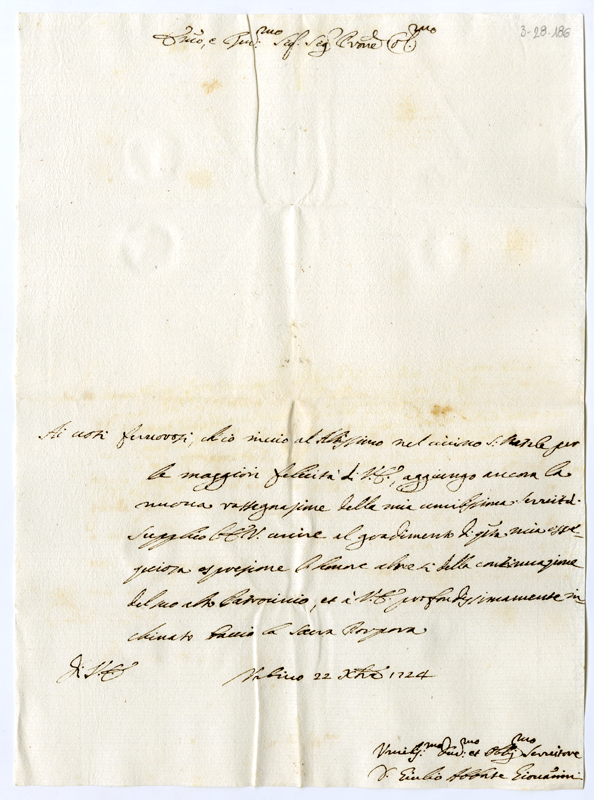 3-29-186
Emo, e Rmo Sig. Sig. Prone Col.mo
Ai voti fervorosi, ch'io invio al Altissimo nel vicino S. Natale per
le maggiori felicità di V. E., aggiungo ancora la
nuova rassegnazione della mia umilissima servitù.
Supplico l'E. V. unire al gradimento di qsta mia osse-
quiosa espressione l'honore altresì della continuazione
del suo alto Patrocinio, et à V. E. profondissimamente in-
chinato baccio la Sacra Porpora
Di V. E.
Urbino 22 Xbre 1724
Umilmo Devmo et Obbgmo Servitore
D. Giulio Abbate Giovannini